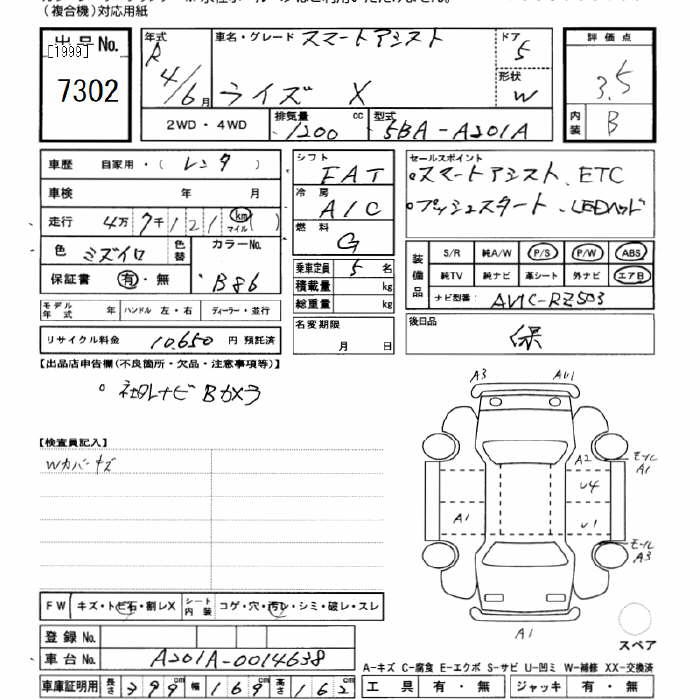 (複合機)対応用紙
出品No.
[1999]
7302
年式 R 4/6月
車名・グレード スマートアシスト
ライズ X
ドア 5
形状 W
2WD・4WD
排気量 1200 cc
型式 5BA-A201A
評価点 3.5
内装 B
車歴 自家用・(レンタ)
車検 年 月
走行 4万7千121 km マイル ( )
色 ミズイロ 色替
カラーNo. B86
保証書 有・無
モデル年式 年 ハンドル 左・右 ディーラー・並行
リサイクル料金 10,650円 預託済
シフト FAT
冷房 A/C
燃料 G
乗車定員 5名
積載量 kg
総重量 kg
名変期限 月 日
セールスポイント
スマートアシスト、ETC
プッシュスタート、LEDヘッド
装備品
S/R 純A/W P/S P/W ABS
純TV 純ナビ 革シート 外ナビ エアB
ナビ型番: AVIC-RZ503
後日品 保
【出品店申告欄(不良箇所・欠品・注意事項等)】
社外ナビ Bカメラ
【検査員記入】
Wカバーキズ
A3
A2
モール A1
U4
A1
U1
モール A3
A1
スペア
FW キズ・トビ石・割レX
シート内装 コゲ・穴・汚レ・シミ・破レ・スレ
登録No.
車台No. A201A-0014638
車庫証明用 長さ 399cm 幅 169cm 高さ 162cm
A-キズ C-腐食 E-エクボ S-サビ U-凹ミ W-補修 XX-交換済
工具 有・無 ジャッキ 有・無